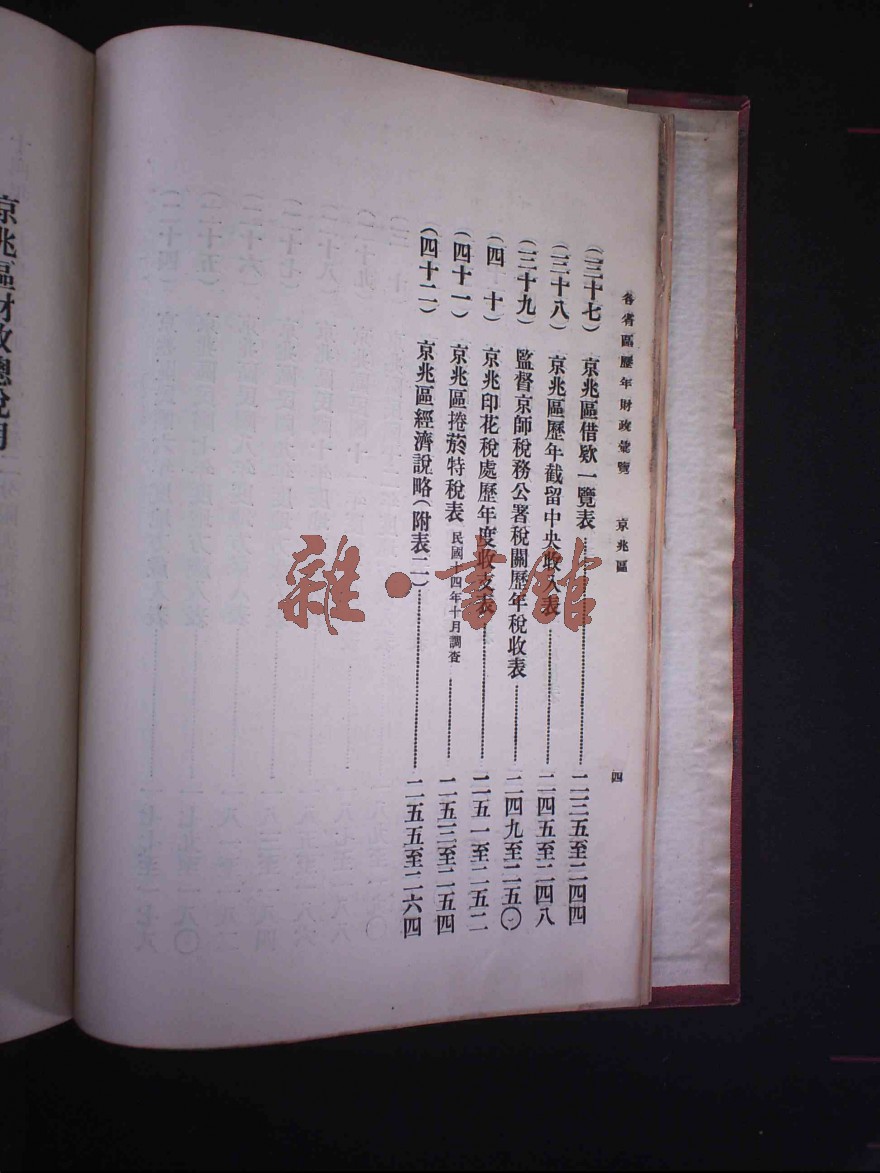 各省區歷年財政彙覽 京兆區 四
（三十七）京兆區借欵一覽表 二三五至二四四
（三十八）京兆區歷年截留中央收入表 二四五至二四八
（三十九）監督京師稅務公署稅關歷年稅收表 二四九至二五〇
（四十）京兆印花稅處歷年度收支表 二五一至二五二
（四十一）京兆區捲菸特稅表 民國十四年十月調查 二五三至二五四
（四十二）京兆區經濟說略（附表二） 二五五至二六四
京兆區財政總說明
雜·書館